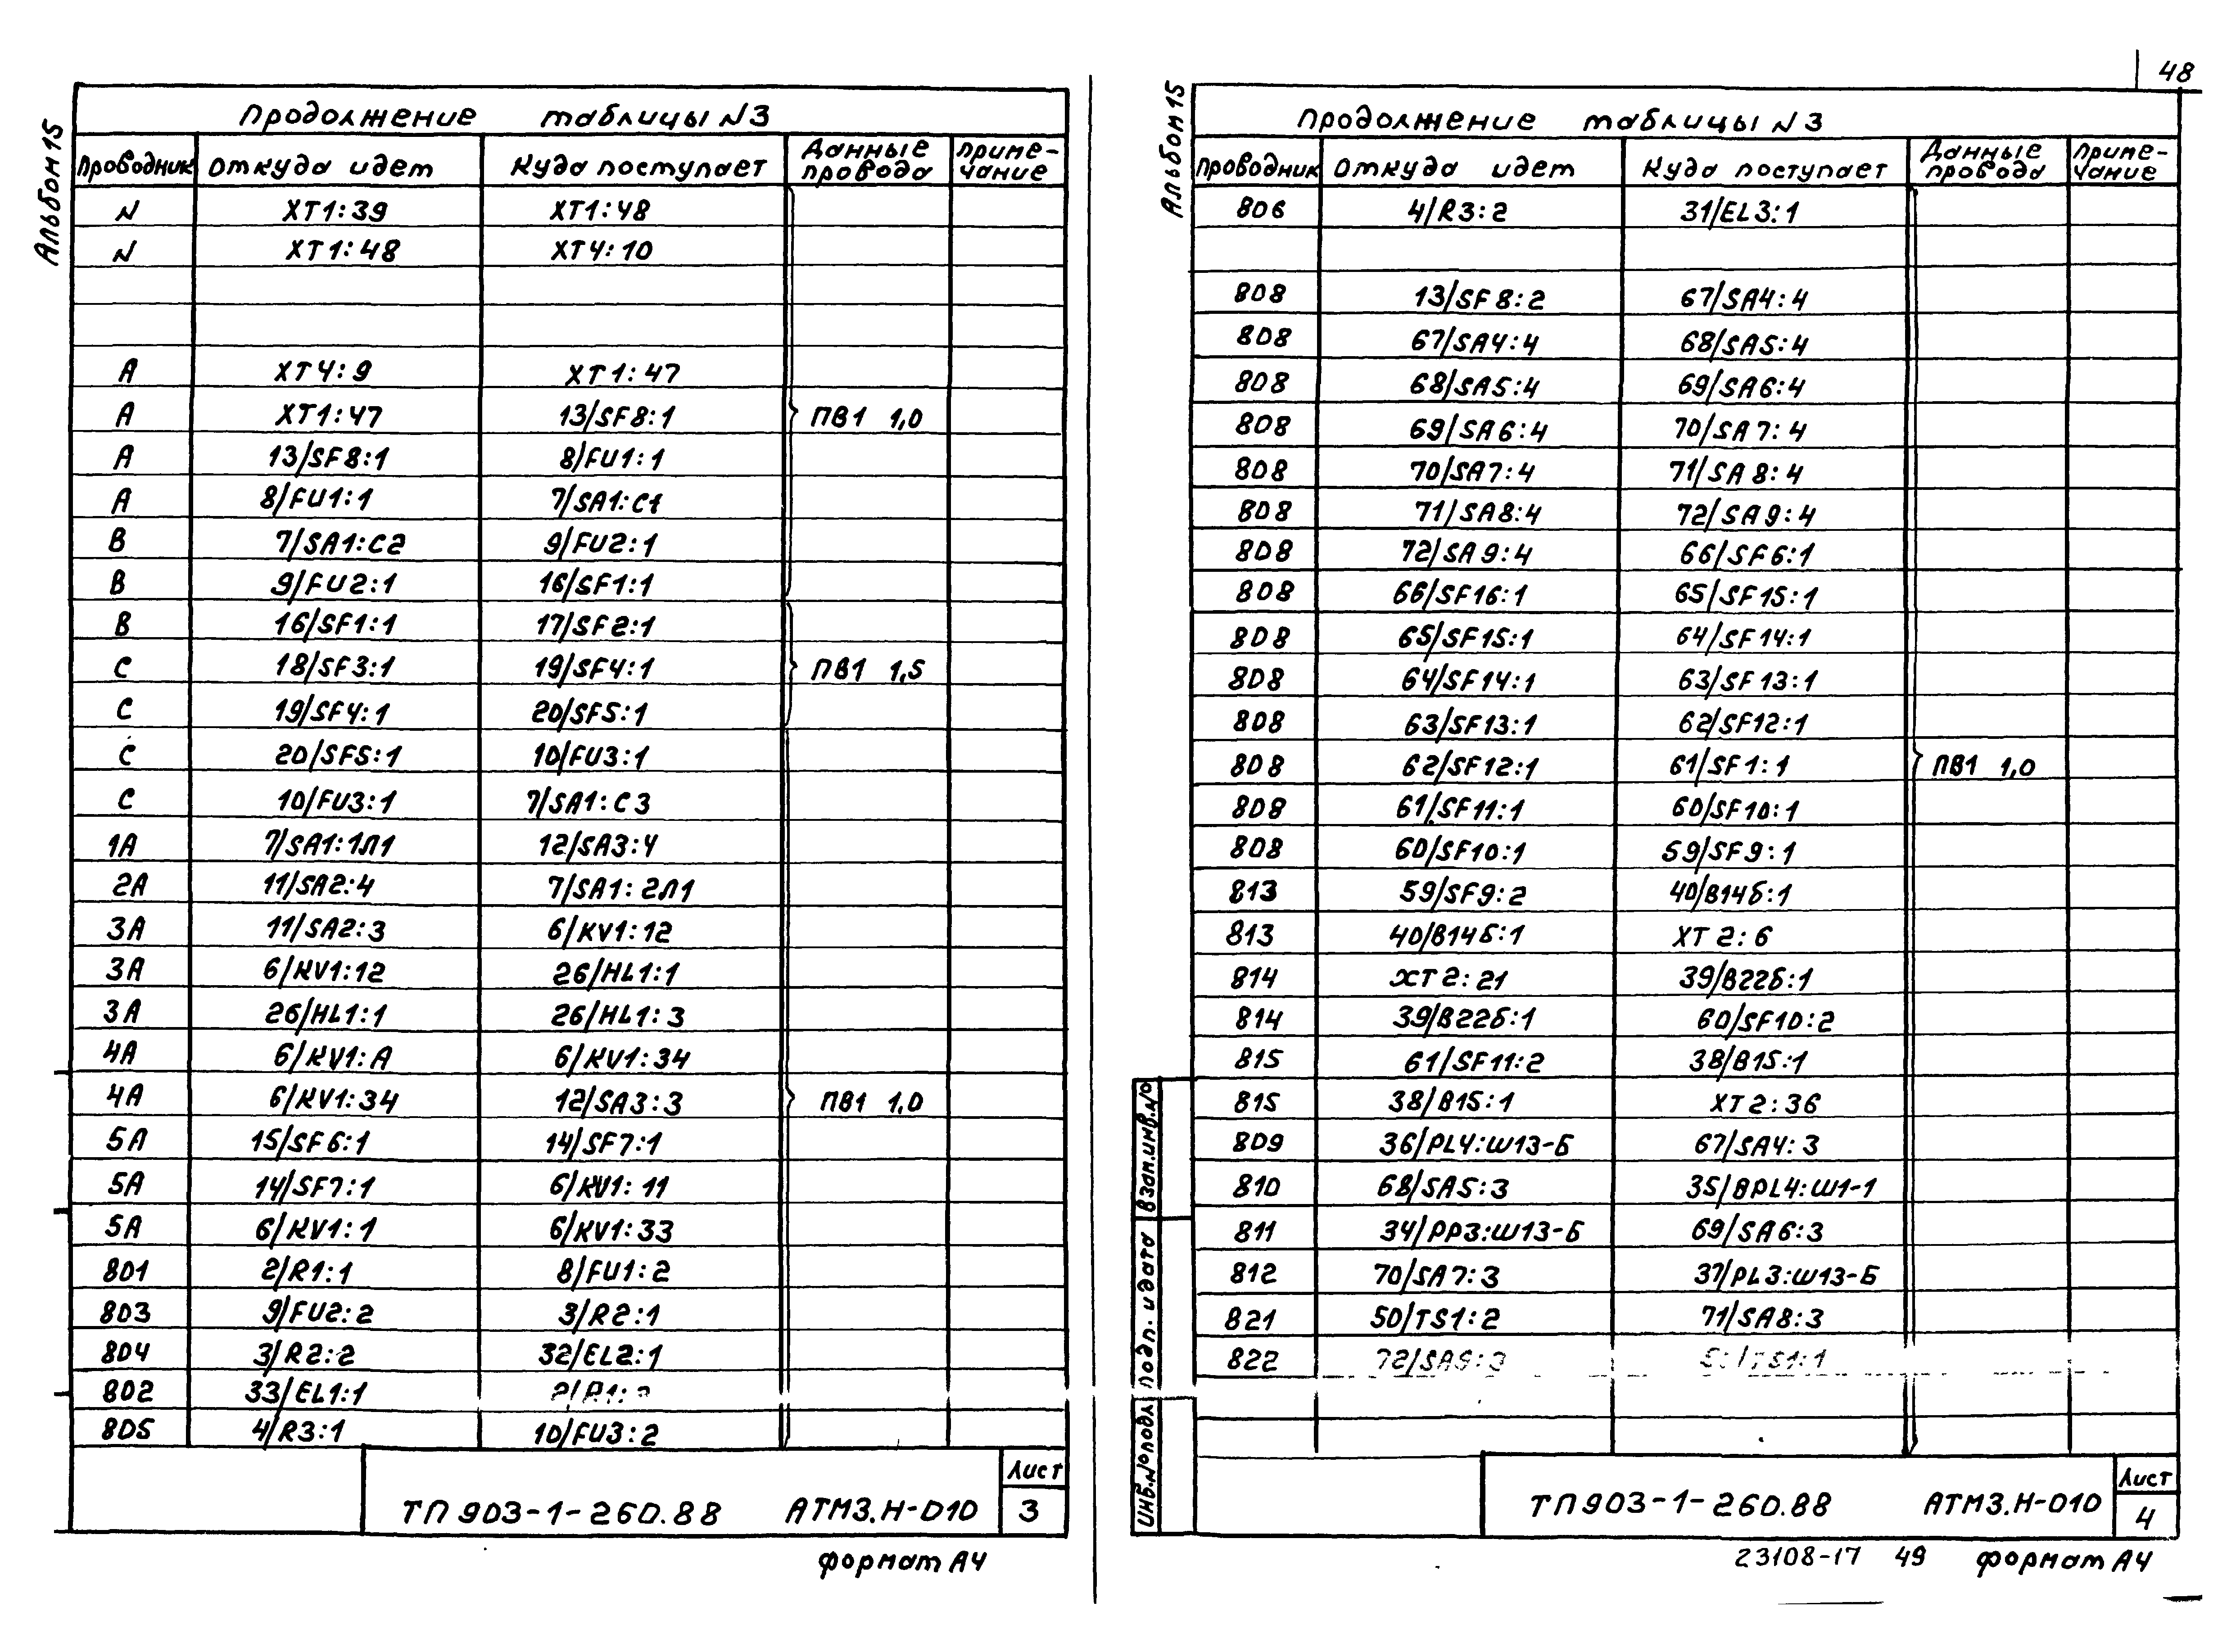 48
Альбом 15
Продолжение таблицы N3
Проводник Откуда идет Куда поступает Данные провода Приме-чание
N XT1:39 XT1:48
N XT1:48 XT4:10
A XT4:9 XT1:47
A XT1:47 13/SF8:1 ПВ1 1,0
A 13/SF8:1 8/FU1:1
A 8/FU1:1 7/SA1:C1
B 7/SA1:C2 9/FU2:1
B 9/FU2:1 16/SF1:1
B 16/SF1:1 17/SF2:1
C 18/SF3:1 19/SF4:1 ПВ1 1,5
C 19/SF4:1 20/SF5:1
C 20/SF5:1 10/FU3:1
C 10/FU3:1 7/SA1:C3
1A 7/SA1:1Л1 12/SA3:4
2A 11/SA2:4 7/SA1:2Л1
3A 11/SA2:3 6/KV1:12
3A 6/KV1:12 26/HL1:1
3A 26/HL1:1 26/HL1:3
4A 6/KV1:A 6/KV1:34
4A 6/KV1:34 12/SA3:3 ПВ1 1,0
5A 15/SF6:1 14/SF7:1
5A 14/SF7:1 6/KV1:11
5A 6/KV1:1 6/KV1:33
801 2/R1:1 8/FU1:2
803 9/FU2:2 3/R2:1
804 3/R2:2 32/EL2:1
802 33/EL1:1 2/R1:
805 4/R3:1 10/FU3:2
ТП 903-1-260.88 АТМ3.Н-010 Лист 3
формат А4
Альбом 15
Продолжение таблицы N3
Проводник Откуда идет Куда поступает Данные провода Приме-чание
806 4/R3:2 31/EL3:1
808 13/SF8:2 67/SA4:4
808 67/SA4:4 68/SA5:4
808 68/SA5:4 69/SA6:4
808 69/SA6:4 70/SA7:4
808 70/SA7:4 71/SA8:4
808 71/SA8:4 72/SA9:4
808 72/SA9:4 66/SF6:1
808 66/SF16:1 65/SF15:1
808 65/SF15:1 64/SF14:1
808 64/SF14:1 63/SF13:1
808 63/SF13:1 62/SF12:1
808 62/SF12:1 61/SF1:1 ПВ1 1,0
808 61/SF11:1 60/SF10:1
808 60/SF10:1 59/SF9:1
813 59/SF9:2 40/В14б:1
813 40/В14б:1 XT2:6
814 XT2:21 39/В22б:1
814 39/В22б:1 60/SF10:2
815 61/SF11:2 38/В15:1
815 38/В15:1 XT2:36
809 36/PL4:Ш13-Б 67/SA4:3
810 68/SA5:3 35/BPL4:Ш1-1
811 34/PP3:Ш13-Б 69/SA6:3
812 70/SA7:3 37/PL3:Ш13-Б
821 50/TS1:2 71/SA8:3
822 72/SA9:3
Взам.инв.№
Подп. и дата
Инв.№ подл
ТП 903-1-260.88 АТМ3.Н-010 Лист 4
23108-17 49 формат А4